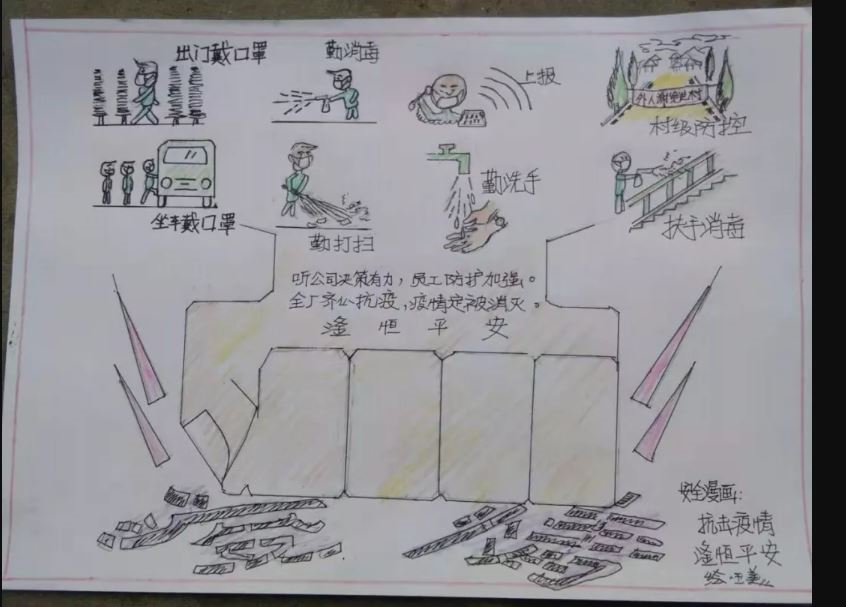 出门戴口罩
勤消毒
上报
外人谢绝进村
村级防控
坐车戴口罩
勤打扫
勤洗手
扶手消毒
听公司决策有力，员工防护加强。
全厂齐心抗疫，疫情定被消灭。
淦恒平安
安全漫画：
抗击疫情
淦恒平安